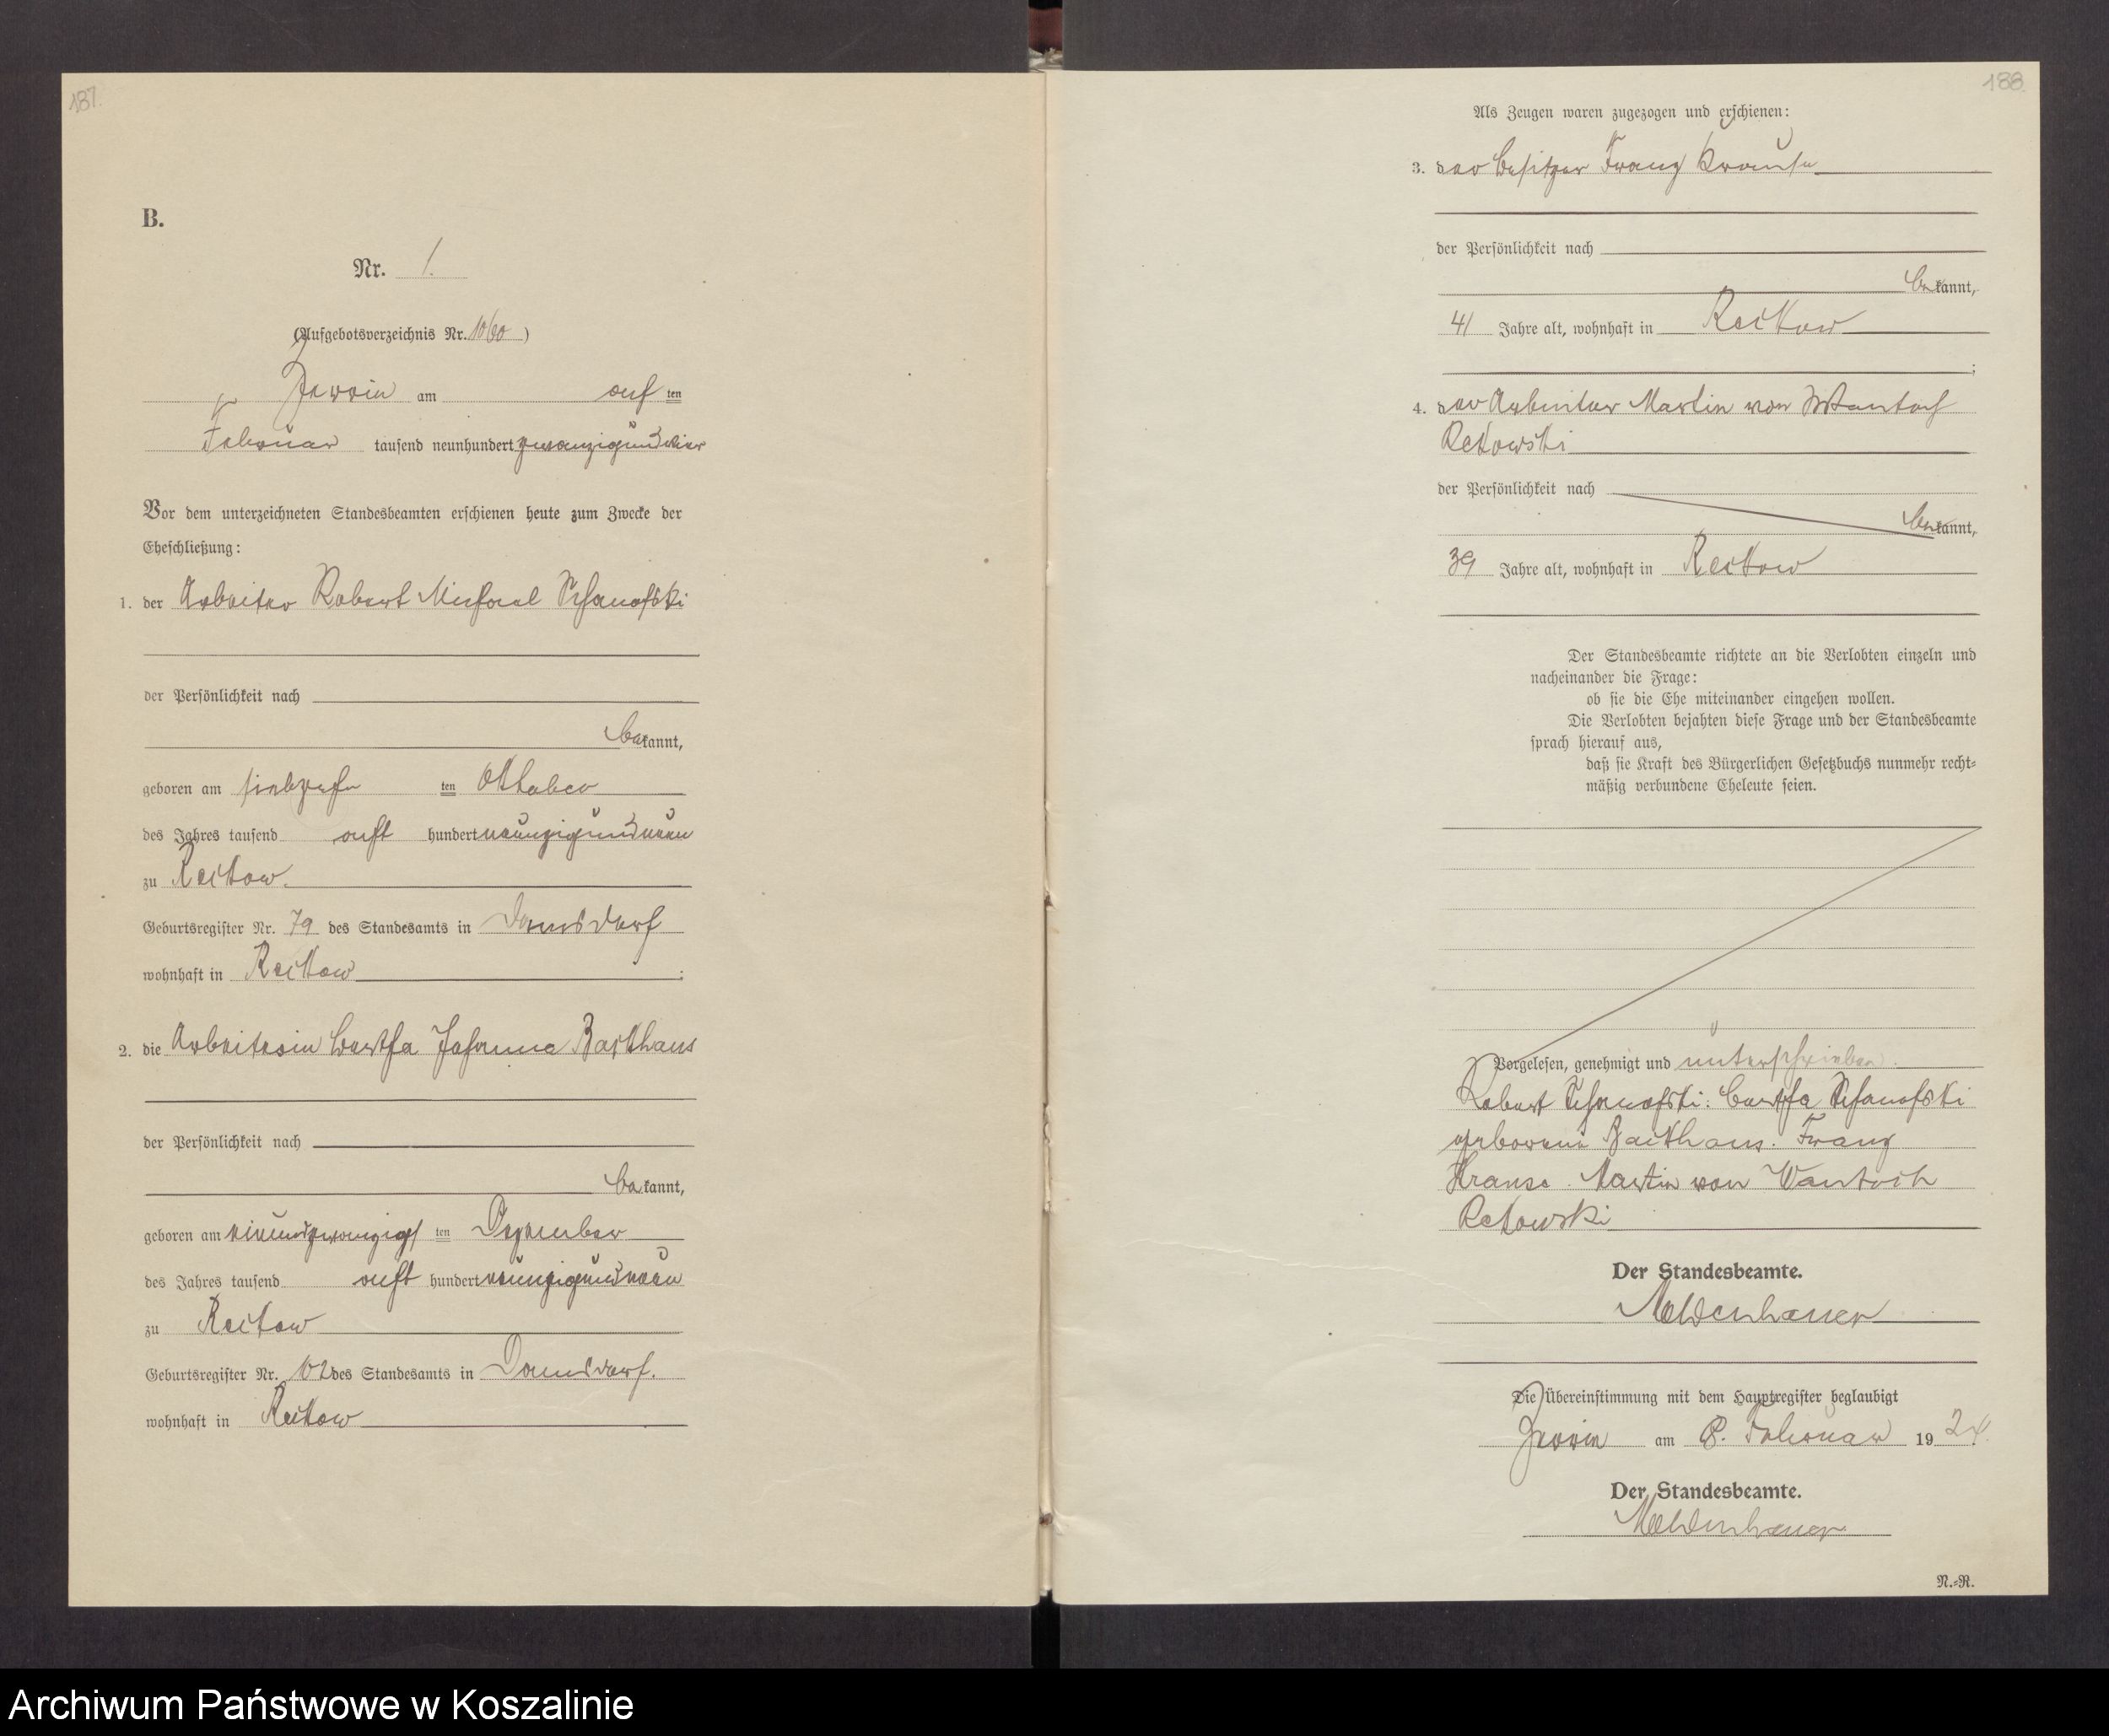 187.
B.
Nr. 1.
(Aufgebotsverzeichnis Nr. )
am acht ten
Februar tausend neunhundert zwanzigundvier
Vor dem unterzeichneten Standesbeamten erschienen heute zum Zwecke der
Eheschließung:
1. der Arbeiter Robert Michael
der Persönlichkeit nach
bekannt,
geboren am siebzehn ten Oktober
des Jahres tausend acht hundert neunzigundneun
zu Reckow.
Geburtsregister Nr. 79 des Standesamts in Damsdorf
wohnhaft in Reckow ;
2. die Arbeiterin Bertha Johanna Backhaus
der Persönlichkeit nach
bekannt,
geboren am einundzwanzigs ten Dezember
des Jahres tausend acht hundert neunzigundneun
zu Reckow
Geburtsregister Nr. 102 des Standesamts in Damsdorf.
wohnhaft in Reckow
188.
Als Zeugen waren zugezogen und erschienen:
3. der Besitzer Franz Krause
der Persönlichkeit nach
bekannt,
41 Jahre alt, wohnhaft in Reckow
;
4. der Arbeiter Martin von Wantoch
Rekowski
der Persönlichkeit nach
bekannt,
39 Jahre alt, wohnhaft in Reckow
Der Standesbeamte richtete an die Verlobten einzeln und
nacheinander die Frage:
ob sie die Ehe miteinander eingehen wollen.
Die Verlobten bejahten diese Frage und der Standesbeamte
sprach hierauf aus,
daß sie Kraft des Bürgerlichen Gesetzbuchs nunmehr recht-
mäßig verbundene Eheleute seien.
Vorgelesen, genehmigt und unterschrieben.
Robert : Bertha
geborene Backhaus. Franz
Krause. Martin von Wantoch
Rekowski
Der Standesbeamte.
Moldenhauer
Die Übereinstimmung mit dem Hauptregister beglaubigt
am 8. Februar 1924.
Der Standesbeamte.
Moldenhauer
N.-R.
Archiwum Państwowe w Koszalinie